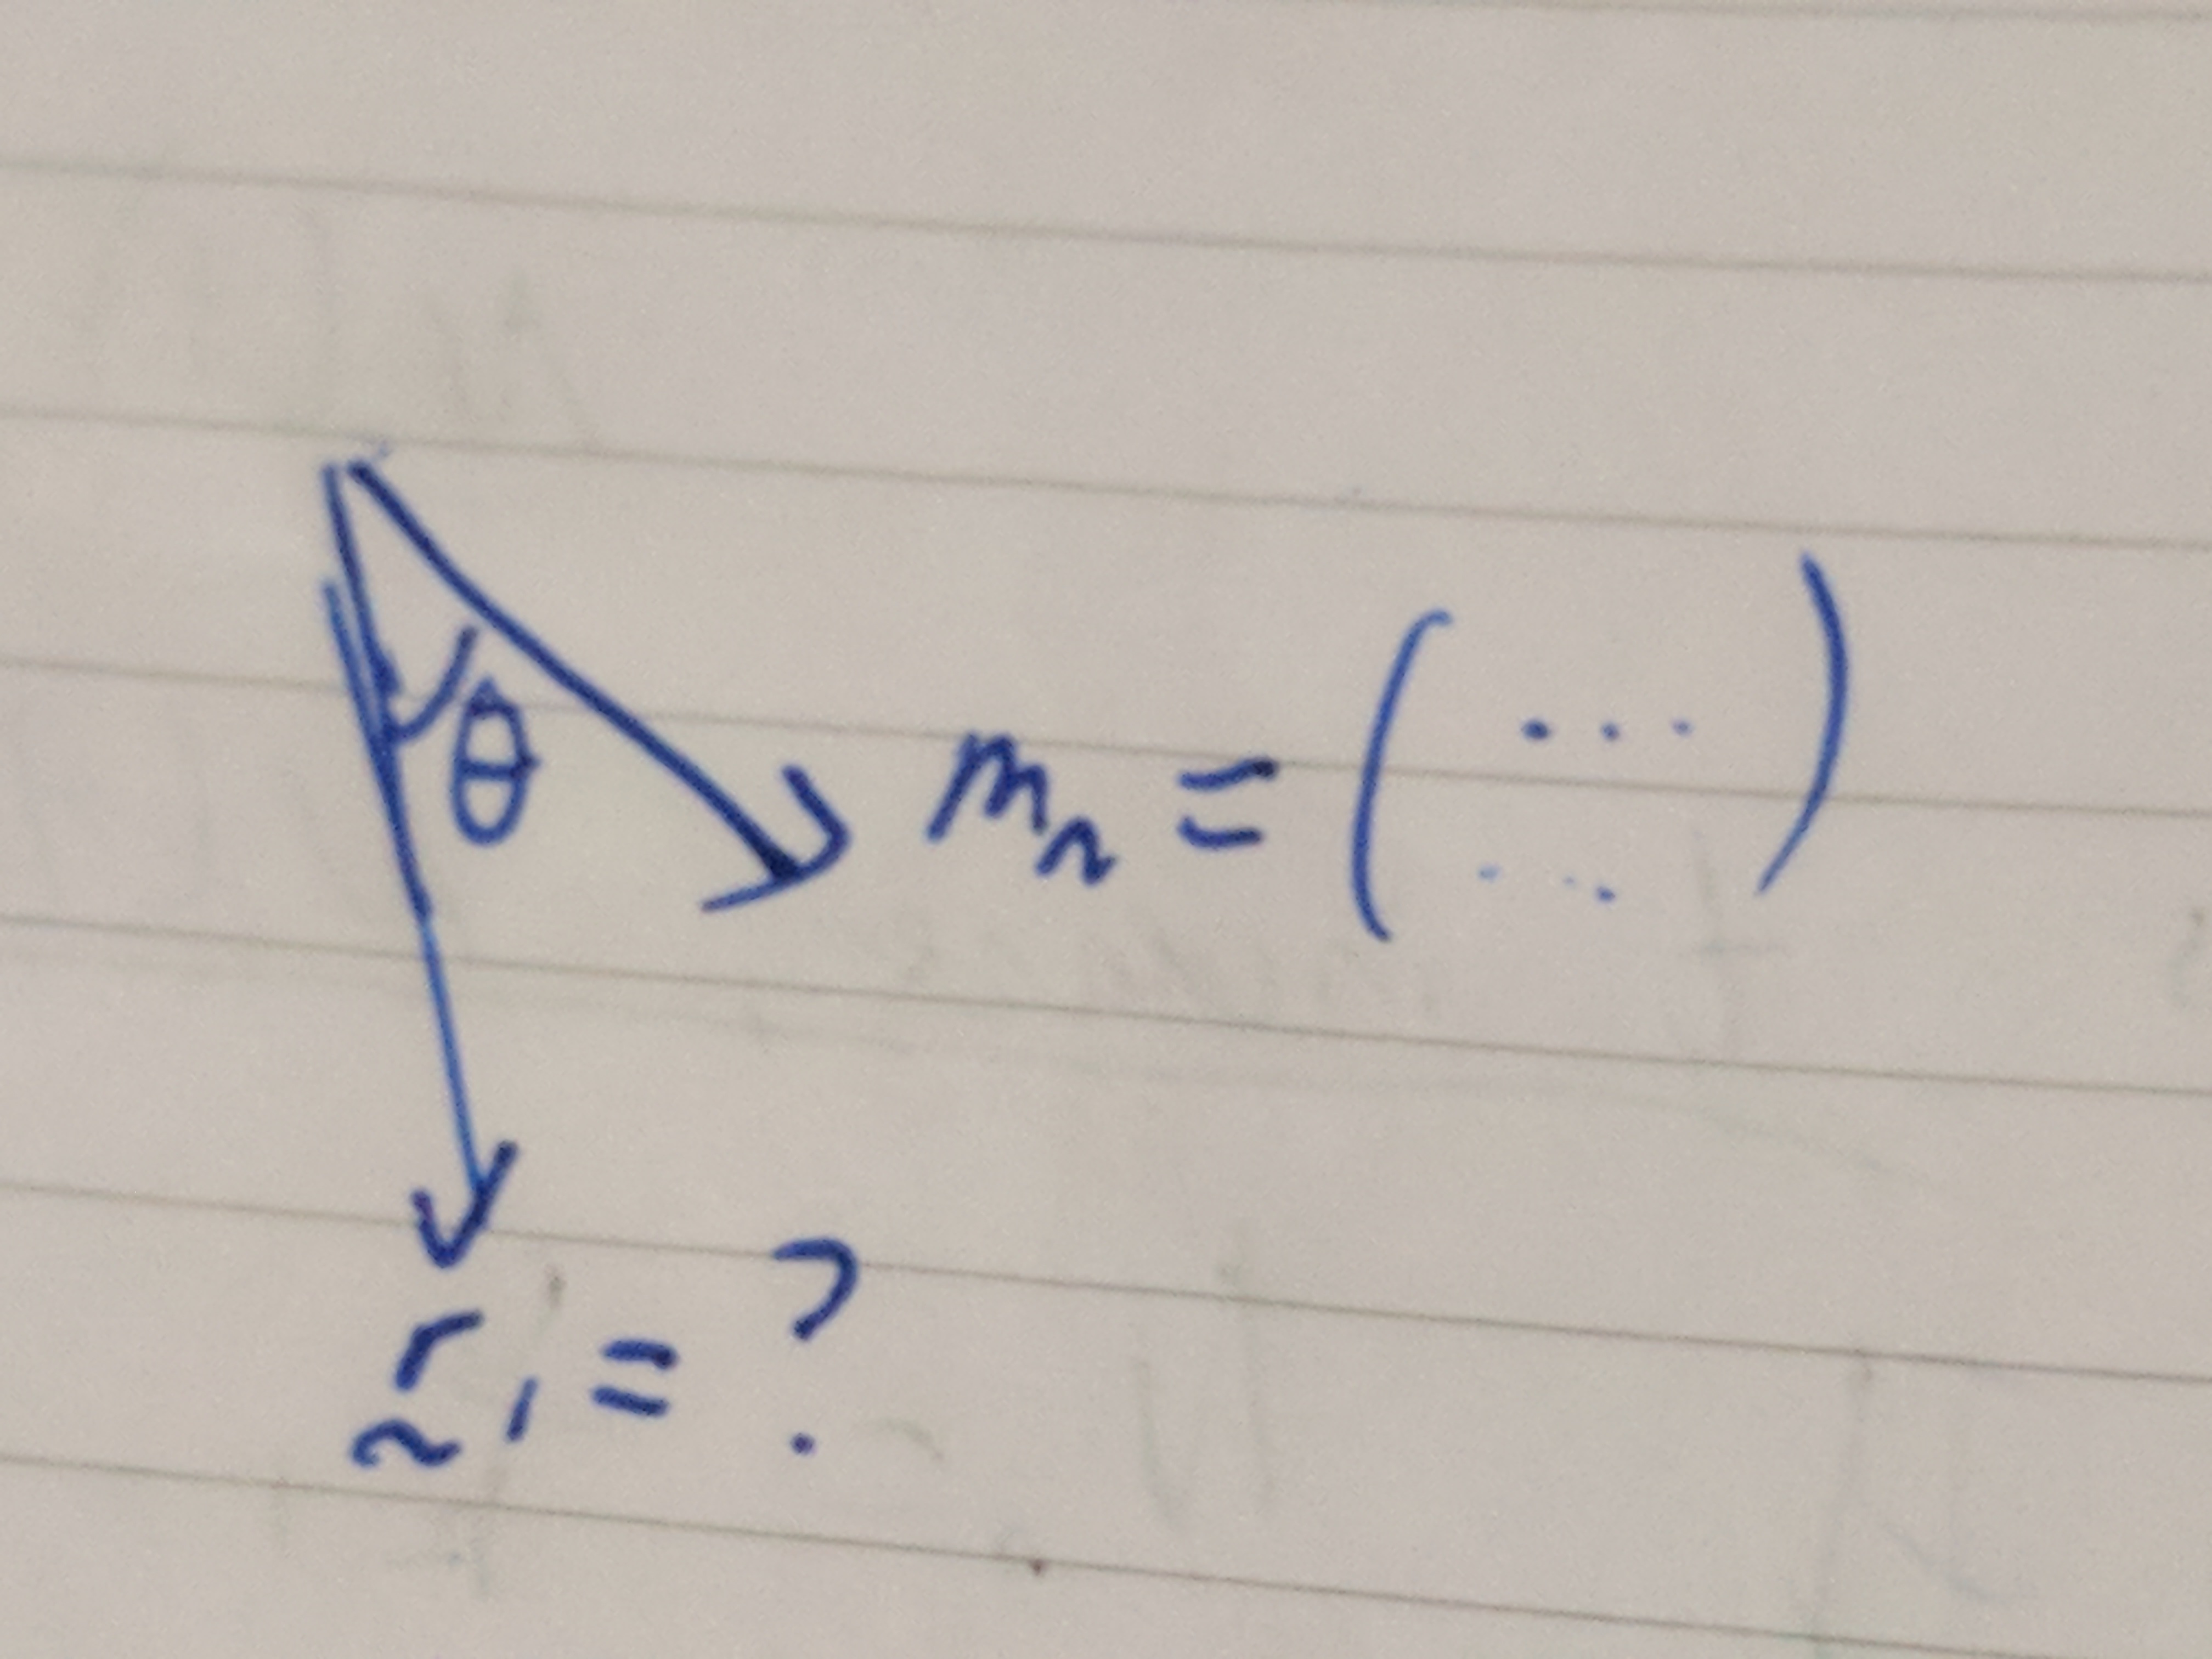 θ
m = ( ... ... )
r₁ = ?